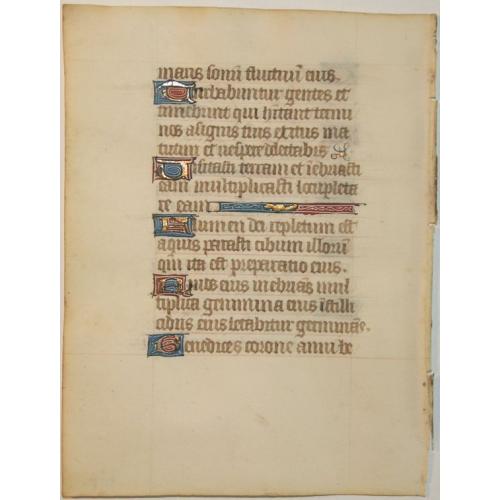 maris sonū fluctuū eius.
Turbabuntur gentes et
timebunt qui hitant termi
nos a signis tuis exitus ma
tutini et uespere delectabis
Uisitasti terram et iebriasti
eam multiplicasti locupleta
re eam
Flumen dei repletum est
aquis parasti cibum illorū
qm̄ ita est preparatio eius.
Riuos eius inebrians mul
tiplica genimina eius ī stilli
cidiis eius letabitur germinās.
Benedices corone anni be